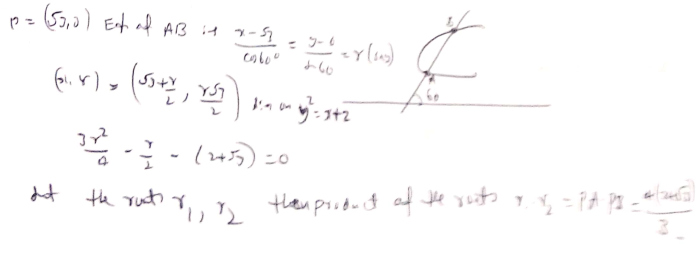 P = (√3, 0) Eqn of AB is (x-√3)/cos60° = (y-0)/sin60 = r (say)
(x, y) = (√3 + r/2, r√3/2) lies on y² = x+2
3r²/4 - r/2 - (2+√3) = 0
let the roots r₁, r₂ then product of the roots r₁ r₂ = PA PB = 4(2+√3)/3
B
A
60